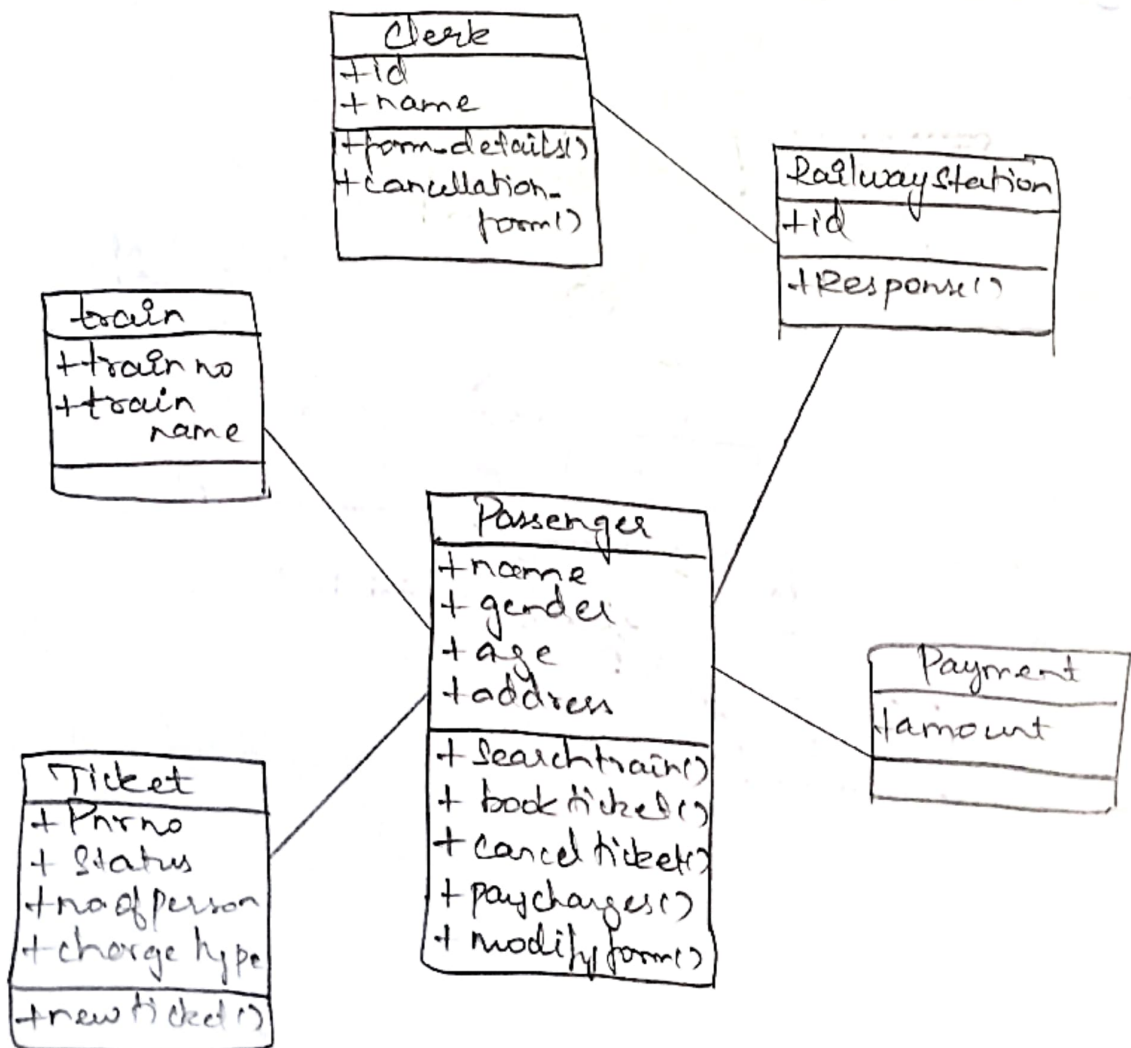 Clerk
+id
+name
+form_details()
+cancellation_
form()
Railway Station
+id
+Response()
train
+train no
+train
name
Passenger
+name
+gender
+age
+address
+searchtrain()
+bookticket()
+cancelticket()
+paycharges()
+modifyform()
Payment
+amount
Ticket
+Pnrno
+Status
+no of person
+charge type
+newticket()